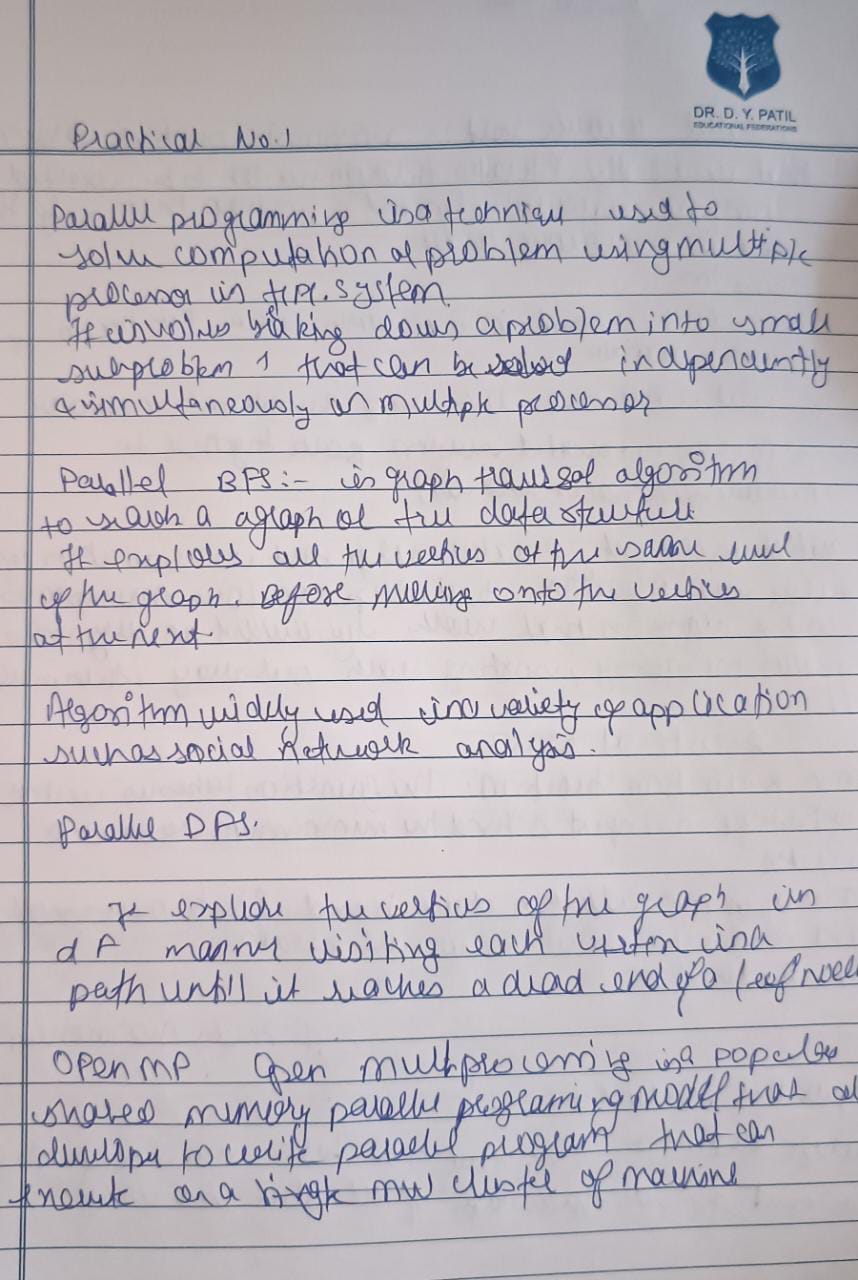 DR. D. Y. PATIL
EDUCATIONAL FEDERATIONS
Practical No.1
Parallel programming is a technique used to
solve computation al problem using multiple
processor in system.
It involves breaking down a problem into small
subproblem that can be solved independently
& simultaneously on multiple processor
Parallel BFS:- is graph traversal algorithm
to search a agraph or tree data structure
It explores all the vertices at the same level
of the graph. Before moving onto the vertices
at the next
Algorithm widely used in a variety of application
such as social network analysis.
Parallel DFS.
It explore the vertices of the graph in
d F manner visiting each vertex in a
path untill it reaches a dead end of a leaf node
OPENMP Open multiprocessing is a popular
shared memory parallel programing model that al
developer to write parallel program that can
on a single cluster of machine